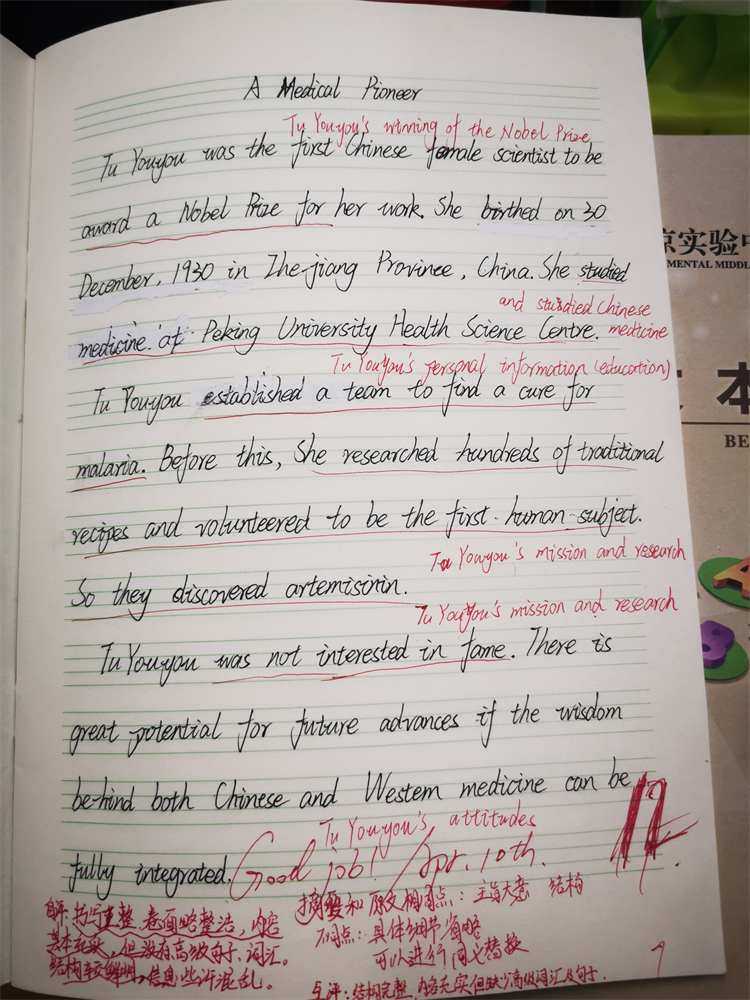 A Medical Pioneer
Tu Youyou's winning of the Nobel Prize
Tu Youyou was the first Chinese female scientist to be
award a Nobel Prize for her work. She birthed on 30
December, 1930 in Zhe-jiang Province, China. She studied
and studied Chinese
medicine at Peking University Health Science Centre. medicine
Tu Youyou's personal information (education)
Tu Youyou established a team to find a cure for
malaria. Before this, She researched hundreds of traditional
recipes and volunteered to be the first human subject.
Tu Youyou's mission and research
So they discovered artemisinin.
Tu Youyou's mission and research
Tu Youyou was not interested in fame. There is
great potential for future advances if the wisdom
be-hind both Chinese and Western medicine can be
Tu Youyou's attitudes
fully integrated. Good job! Apr. 10th.
自评：书写工整，卷面略整洁，内容
基本充实，但没有高级句子、词汇。
结构较鲜明，信息些许混乱。
摘要和原文相同点：主旨大意 结构
不同点：具体细节省略
可以进行同义替换
互评：结构完整，内容充实但缺少高级词汇及句子。
京实验中
MENTAL MIDDL
本
BE
A
B